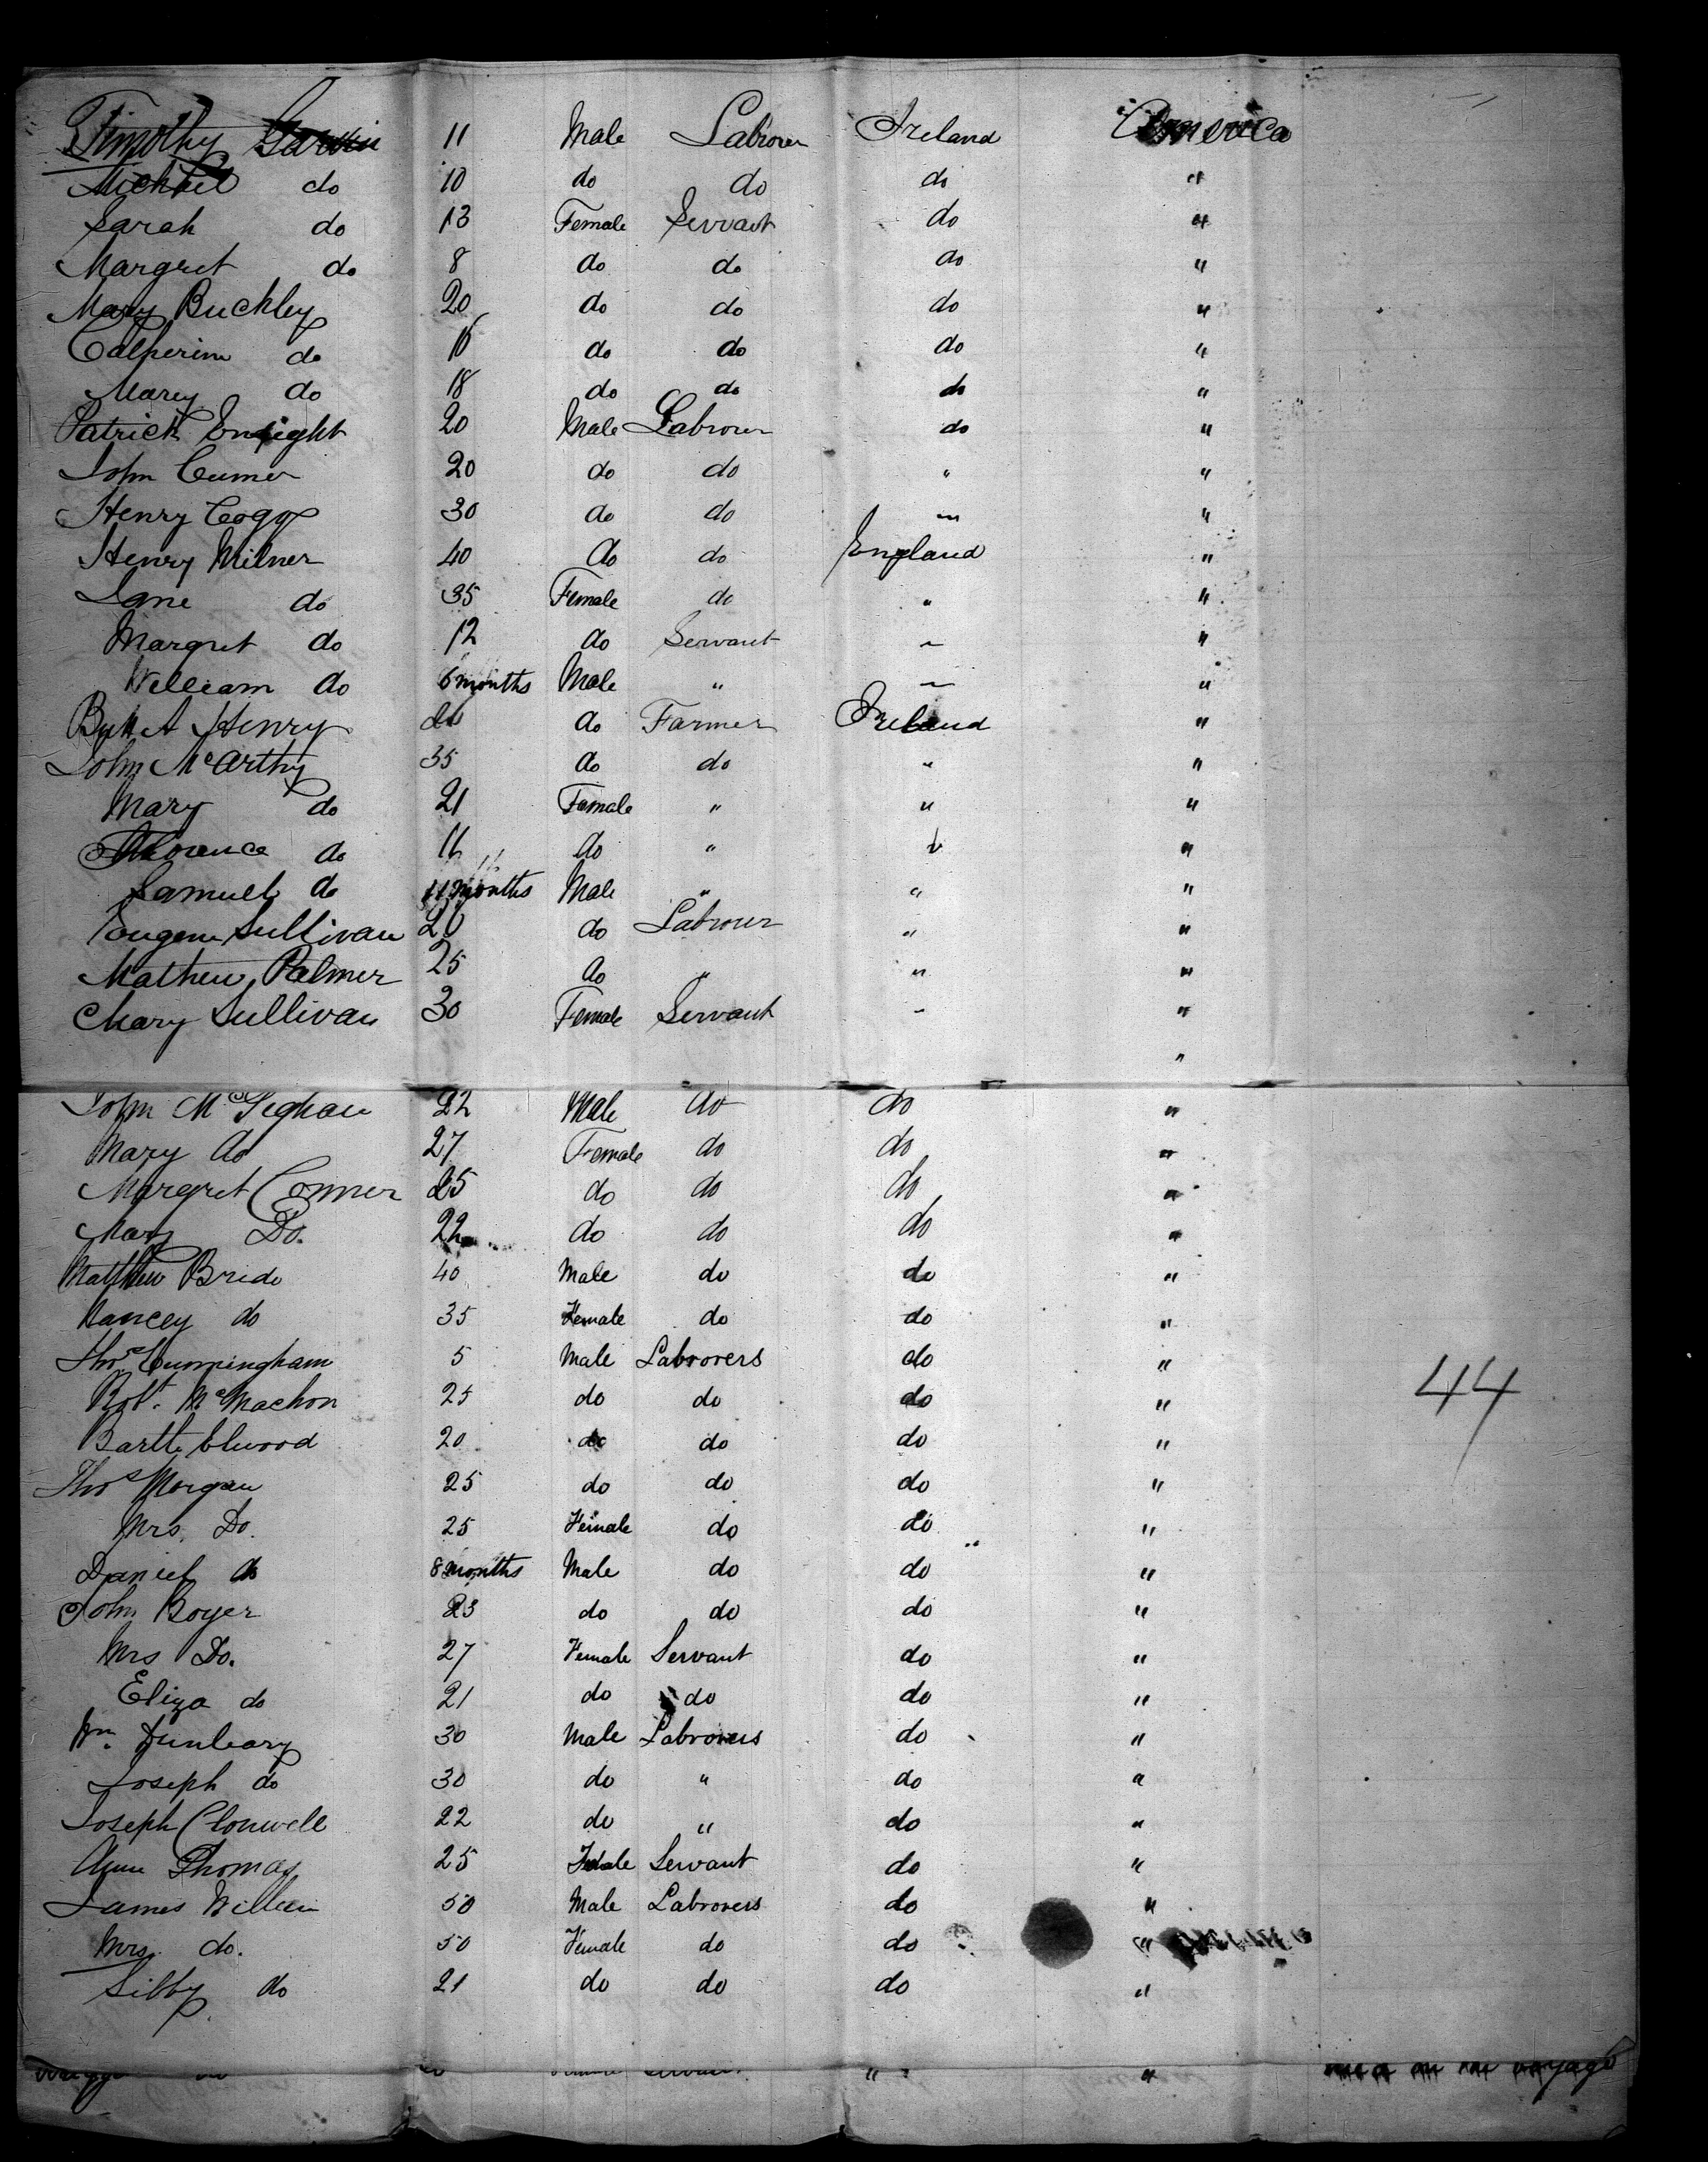 Timothy Garvin 11 Male Labrour Ireland America
Michael do 10 do do do "
Sarah do 13 Female Servant do "
Margret do 8 do do do "
Mary Buckley 20 do do do "
Catherine do 16 do do do "
Mary do 18 do do do "
Patrick Enright 20 Male Labrour do "
John 20 do do " "
Henry 30 do do "
Henry Milner 40 do do England "
Jane do 35 Female do " "
Margret do 12 do Servant "
William do 6 months Male " "
Henry do Farmer Ireland "
John McArthy 35 do do " "
Mary do 21 Female " " "
Florence do 11 do " "
Samuel do 11 months Male " " "
Eugene Sullivan 20 do Labrour " "
Mathew Palmer 25 do " " "
Mary Sullivan 30 Female Servant "
"
John 22 Male do do "
Mary do 27 Female do do "
Margret Conner 25 do do do "
Mary Do. 22 do do do "
Matthew Bride 40 Male do do "
Nancey do 35 Female do do "
Thos Cunningham 5 Male Labrorers do "
Robt. McMachon 25 do do do " 44
Bartt Elwood 20 do do do "
Thos Morgan 25 do do do "
Mrs. Do. 25 Female do do "
Daniel do 8 months Male do do "
John Boyer 23 do do do "
Mrs Do. 27 Female Servant do "
Eliza do 21 do do do "
Wm. Dunleary 30 Male Labrorers do "
Joseph do 30 do " do "
Joseph Clonwell 22 do " do "
Anne Thomas 25 Female Servant do "
James 50 Male Labrorers do "
Mrs. do. 50 Female do do "
Sibby do 21 do do do "
" " voyage